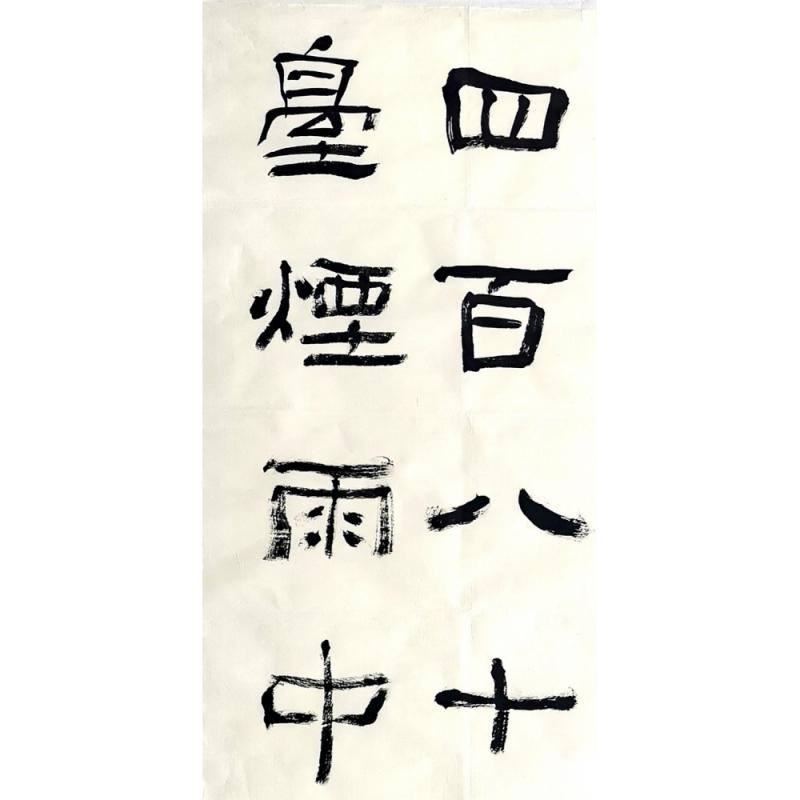 四百八十
臺煙雨中